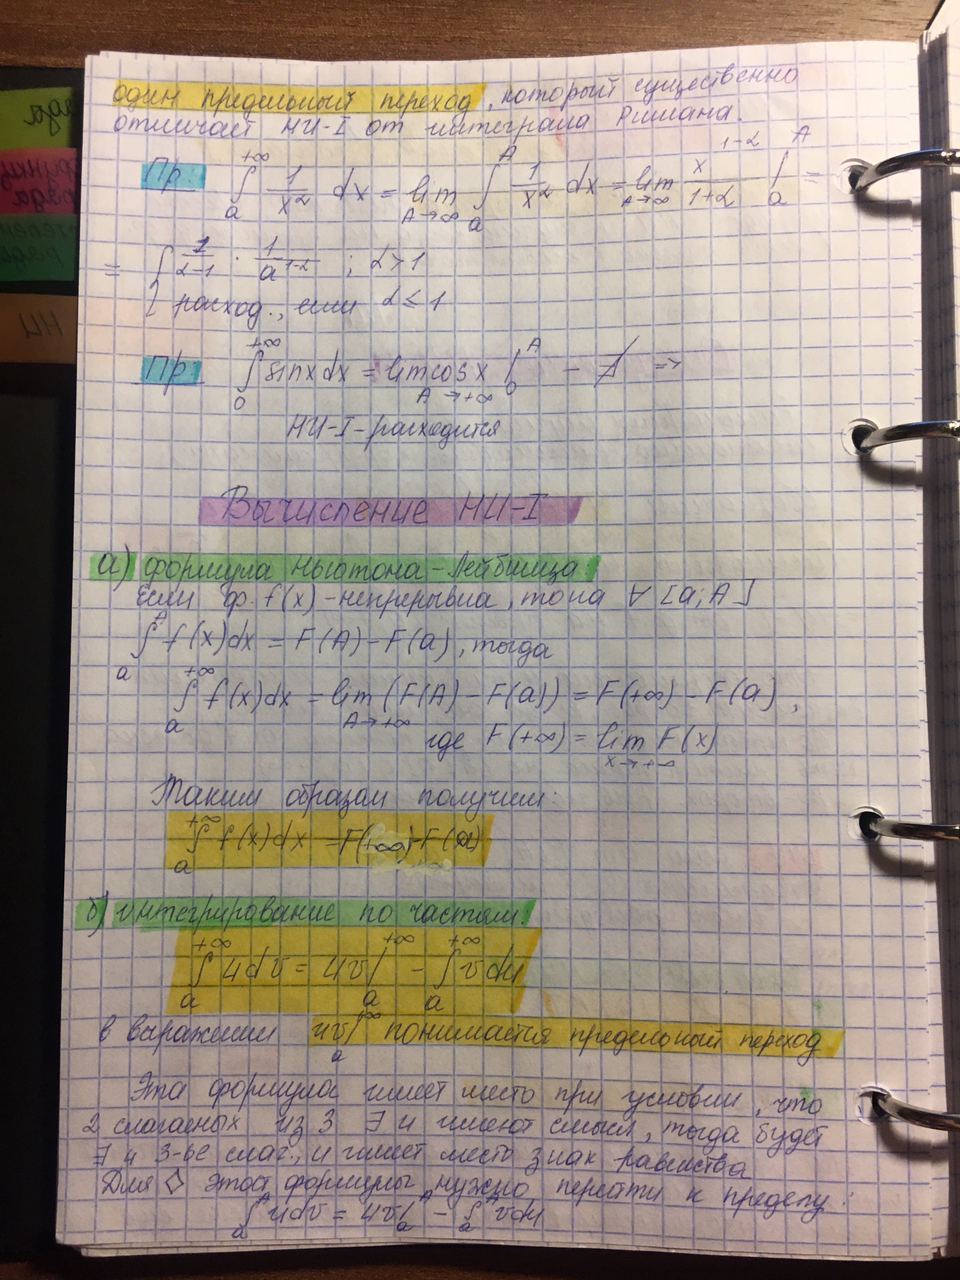 один предельный переход, который существенно
отличает НИ-I от интеграла Римана.
Пр: ∫ₐ^{+∞} 1/x^α dx = lim_{A→∞} ∫ₐ^A 1/x^α dx = lim_{A→∞} x^{1-α}/(1+α) |ₐ^A =
= { 1/(α-1) · 1/a^{1-α} ; α>1
расход., если α ≤ 1
Пр: ∫₀^{+∞} sinx dx = lim_{A→+∞} cosx |₀^A - ∄ =>
НИ-I-расходится
Вычисление НИ-I
а) формула Ньютона-Лейбница
Если ф. f(x)-непрерывна, то на ∀ [a;A]
∫ₐ^A f(x)dx = F(A)-F(a), тогда
∫ₐ^{+∞} f(x)dx = lim_{A→+∞} (F(A)-F(a)) = F(+∞)-F(a),
где F(+∞) = lim_{x→+∞} F(x)
Таким образом получим:
∫ₐ^{+∞} f(x)dx = F(+∞)-F(a)
б) интегрирование по частям:
∫ₐ^{+∞} udv = uv|ₐ^{+∞} - ∫ₐ^{+∞} vdu
в выражении uv|ₐ^∞ понимается предельный переход
Эта формула имеет место при условии, что
2 слагаемых из 3 ∃ и имеют смысл, тогда будет
∃ и 3-ье слаг., и имеет место знак равенства
Для ◇ этой формулы нужно перейти к пределу:
∫ₐ^A udv = uv|ₐ^A - ∫ₐ^A vdu